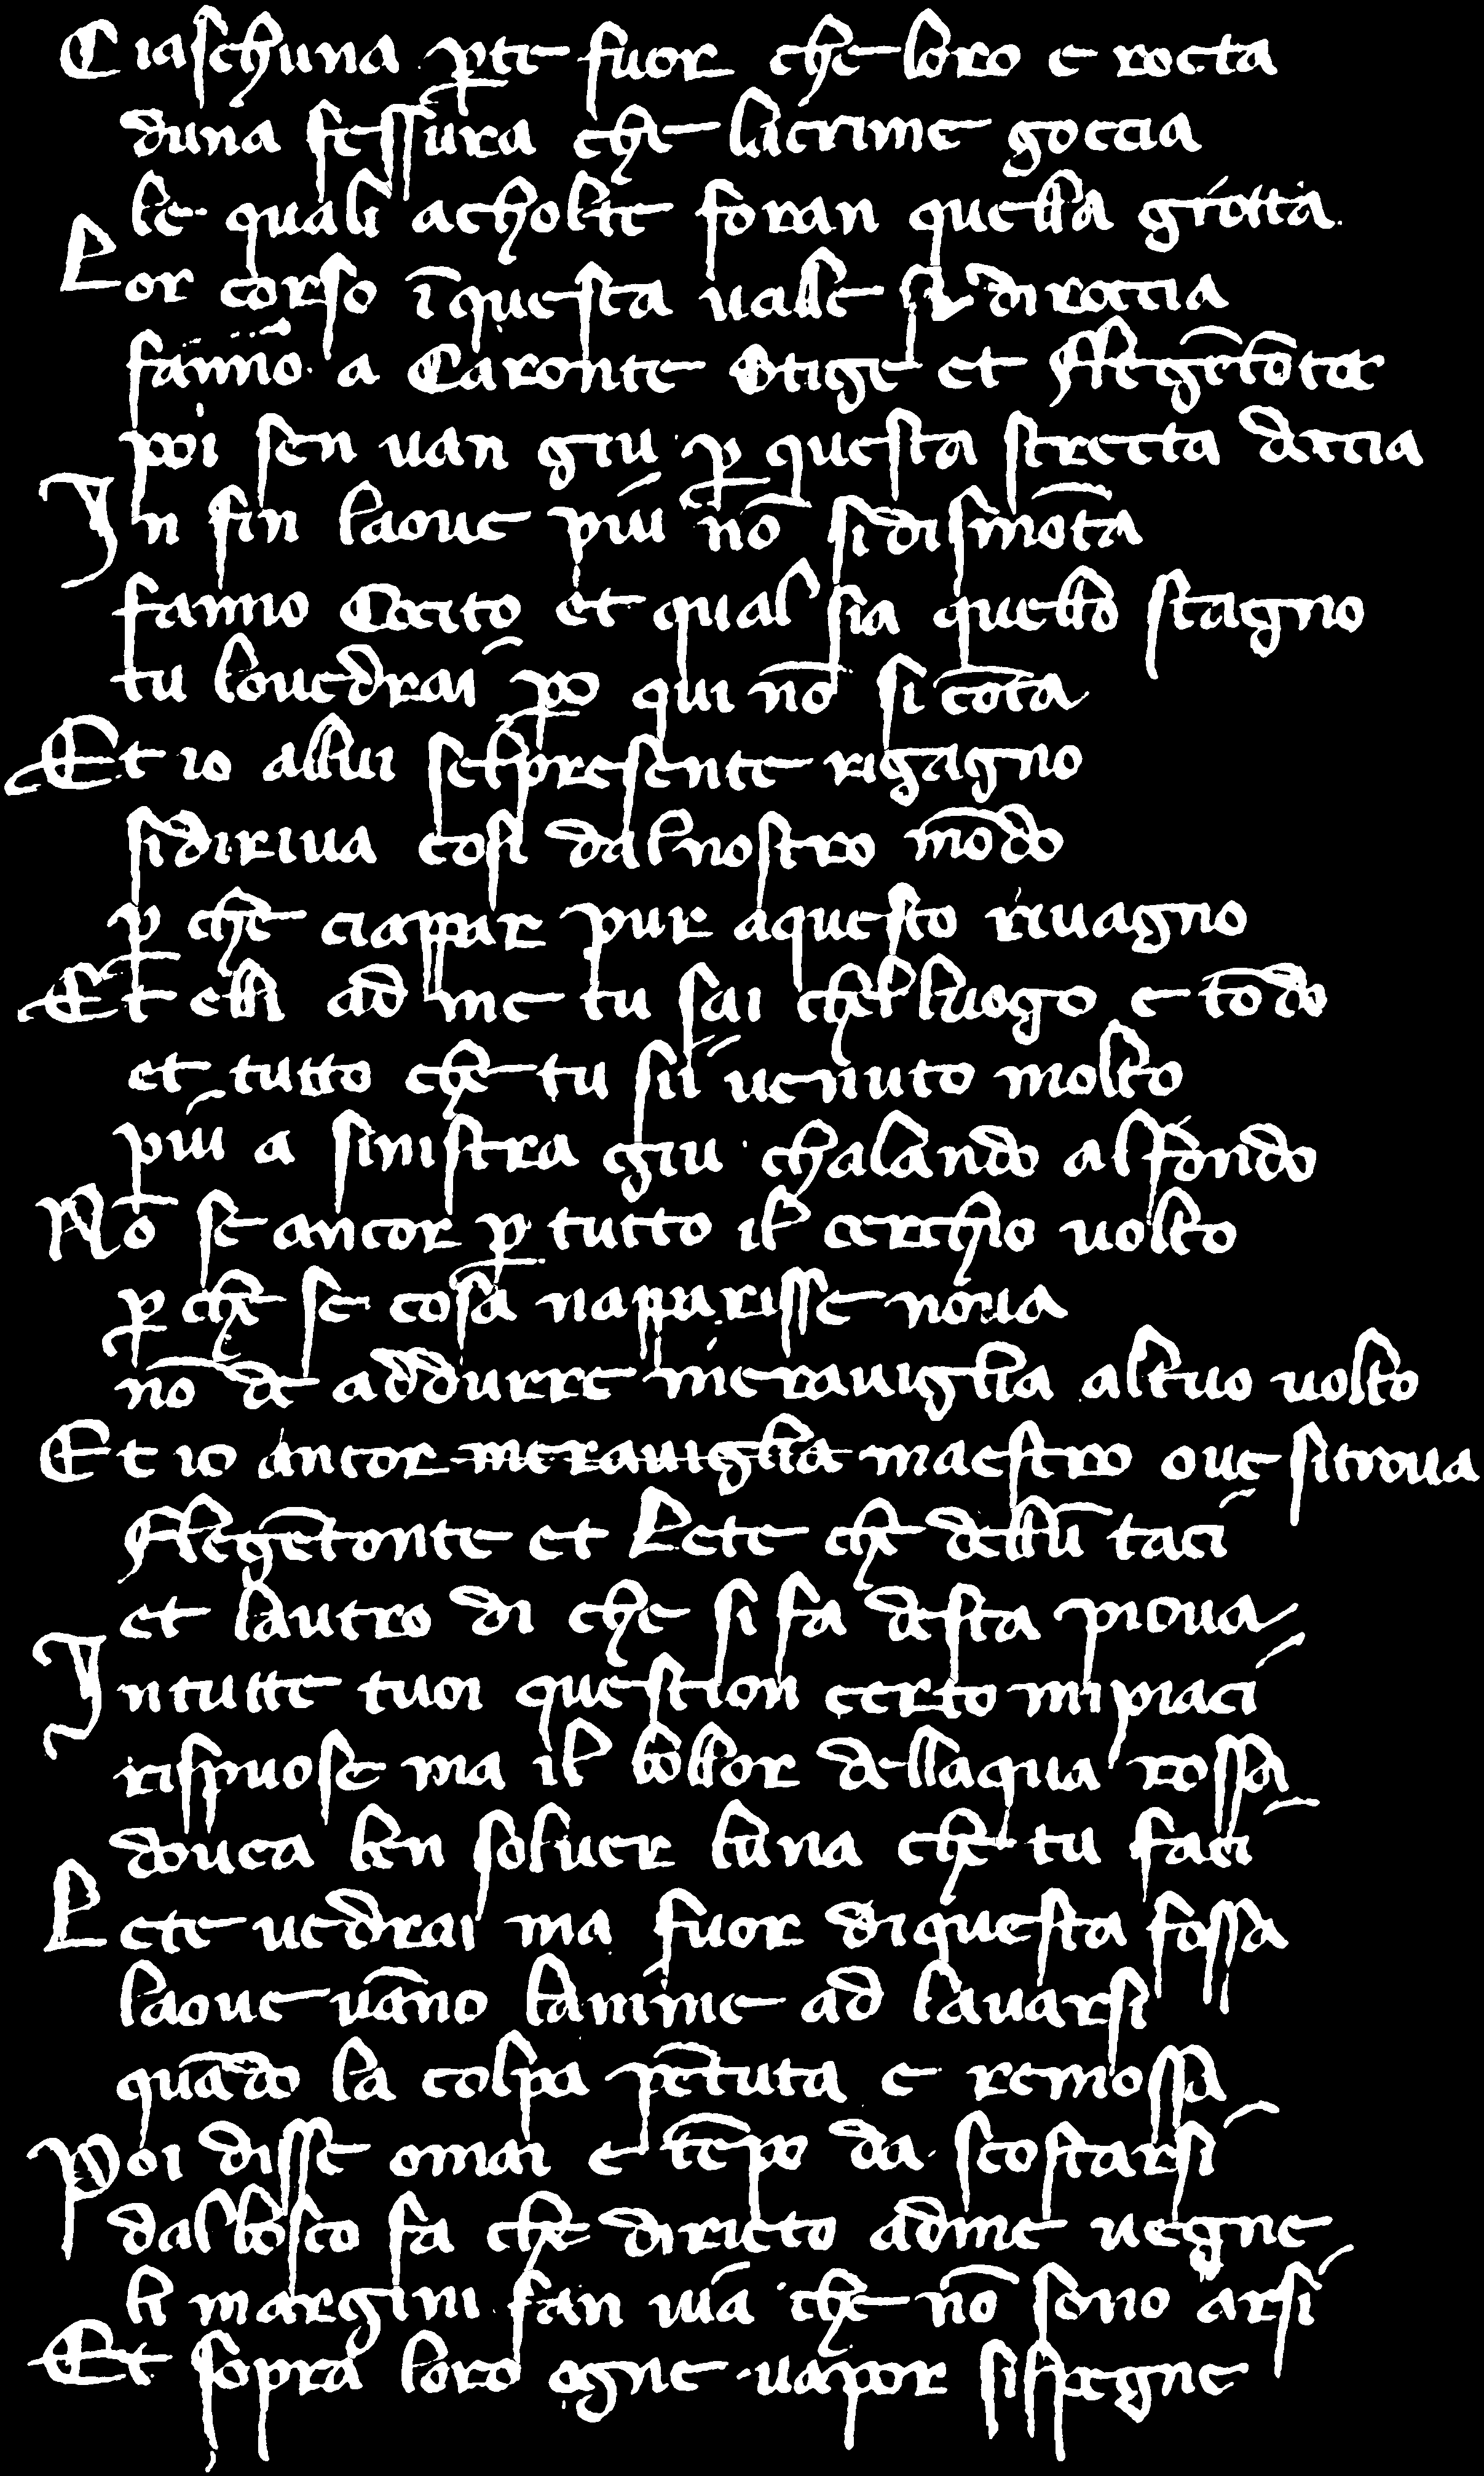 Ciaschuna ꝑte fuor che loro e rocta
duna fessura che lacrime goccia
le quali acholte foran quella grotta.
Lor corso ī questa ualle si diroccia
fanno a Caronte Stige et Flegētōta
poi sen uan giu ꝑ questa strecta doccia
In fin laoue piu nō si dismōta
fanno Cocito et qual sia quello stagno
tu louedrai ꝑo qui nō si cōta
Et io allui sel presente rigagno
si diriua cosi dal nostro mōdo
ꝑ che ciappar pur a questo riuagno
Et elli ad me tu sai chel luogo e tōdo
et tutto che tu sii uenuto molto
piu a sinistra giu chalando al fondo
Nō se ancor ꝑ tutto il cerchio uolto
ꝑ che se cosa napparisse noua
nō de addurre merauiglia al tuo uolto
Et io ancor merauiglia maestro oue si troua
Flegētonte et Lete che dellū taci
et lautro di che si fa desta pioua
In tutte tuoi question certo mi piaci
rispuose ma il bollor dellaqua rossa
douea ben soluer luna che tu faci
Lete uedrai ma fuor di questa fossa
laoue uāno lanime ad lauarsi
quādo la colpa pētuta e remossa
Poi disse omai e tēpo da scostarsi
dal bosco fa che dirieto ad me uegne
li margini fan uia che nō sono arsi
Et sopra loro ogne uapor si spegne